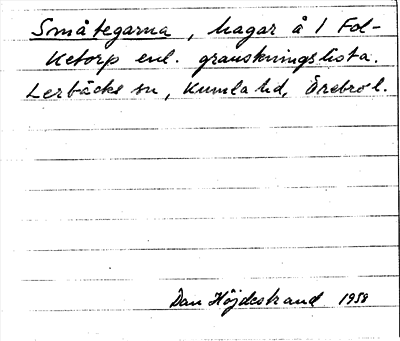 Småtegarna, hagar å 1 Fol-
ketorp enl. granskningslista.
Lerbäcks sn, Kumla hd, Örebro l.
Dan Höjdestrand 1958